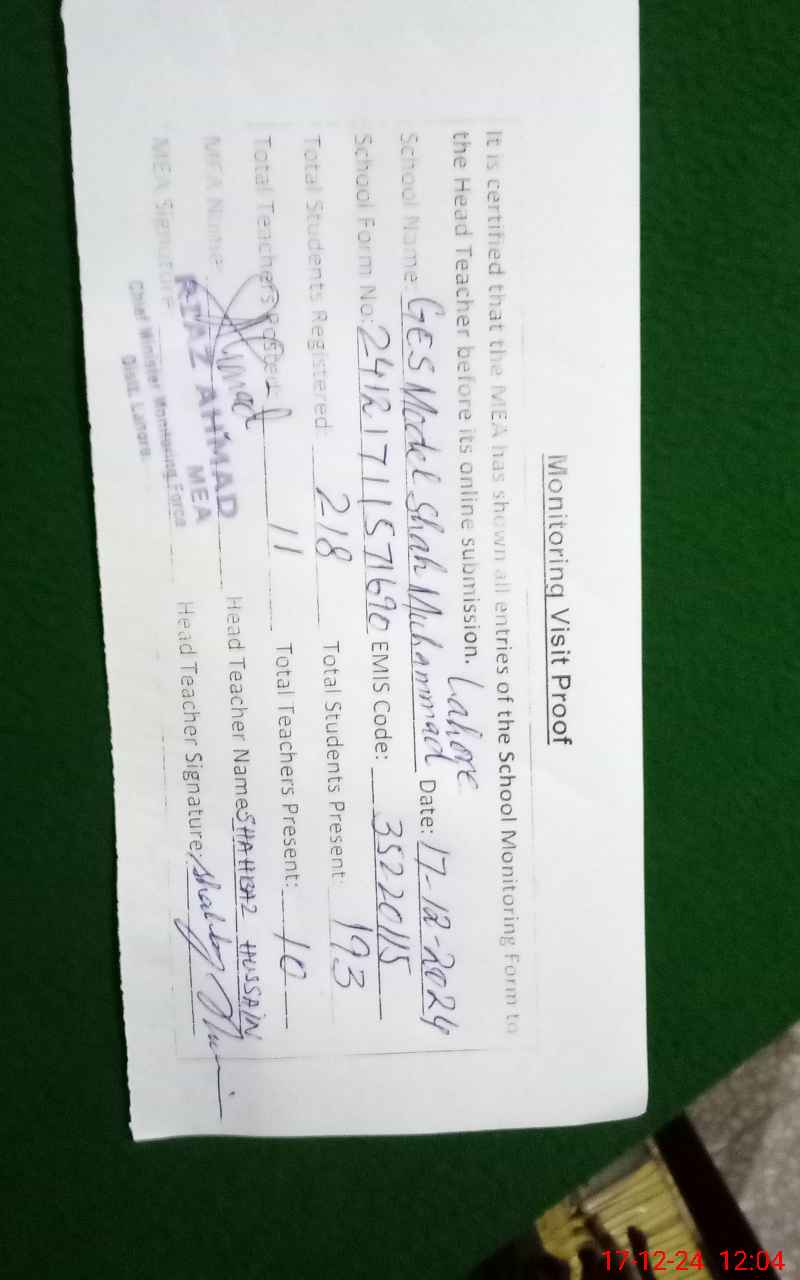 Monitoring Visit Proof
It is certified that the MEA has shown all entries of the School Monitoring Form to
the Head Teacher before its online submission. Lahore
School Name: GES Model Shah Muhammad Date: 17-12-2024
School Form No: 24121711571690 EMIS Code: 35220115
Total Students Registered: 218 Total Students Present: 193
Total Teachers Posted: 11 Total Teachers Present: 10
MEA Name: RIAZ AHMAD Head Teacher Name SHAHBAZ HUSSAIN
MEA
MEA Signature: Head Teacher Signature:
Chief Minister Monitoring Force
Distt. Lahore.
17-12-24 12:04